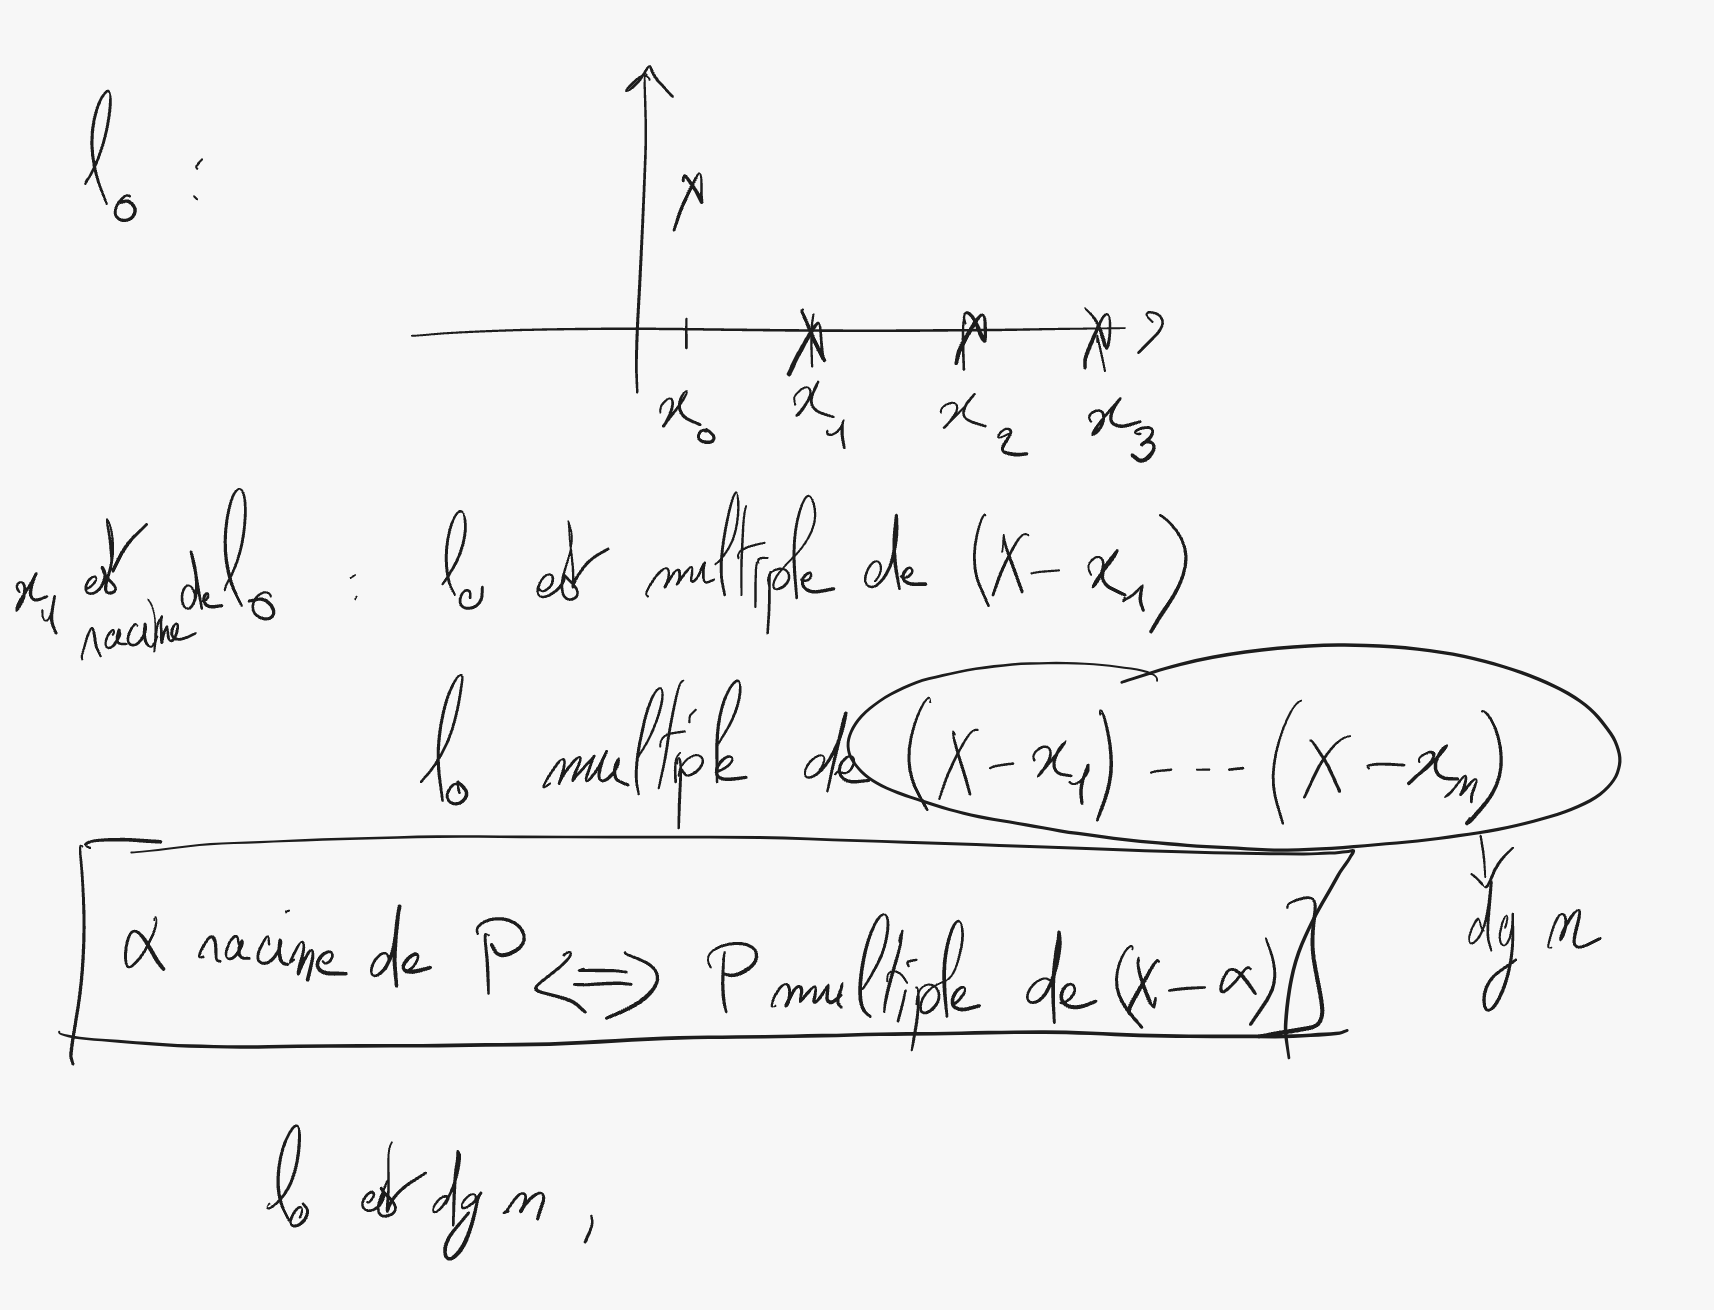 l₀ :
x₀ x₁ x₂ x₃
x₁ est racine de l₀ : l₀ est multiple de (X - x₁)
l₀ multiple de (X - x₁) ---- (X - xₙ)
dg n
α racine de P <=> P multiple de (X - α)
l₀ est dg n,